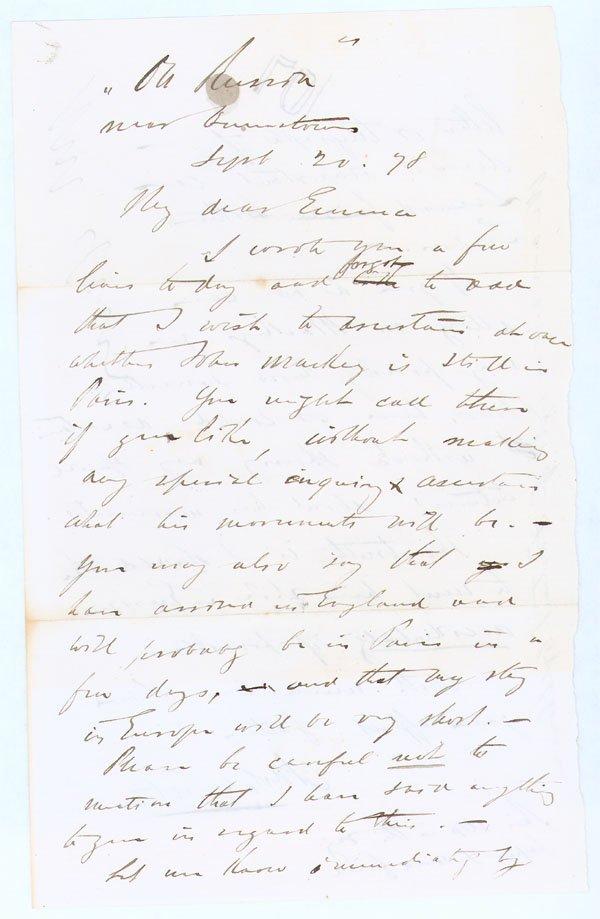 "SS Russia"
near Queenstown
Sept 20. 78
My dear Emma
I wrote you a few
lines today and forgot to add
that I wish to ascertain at once
whether John Mackey is still in
Paris. You might call there
if you like, without making
any special inquiry & ascertain
what his movements will be. —
You may also say that I
have arrived in England and
will probably be in Paris in a
few days, and that my stay
in Europe will be very short. —
Please be careful not to
mention that I have said anything
to you in regard to this. —
Let me know immediately by